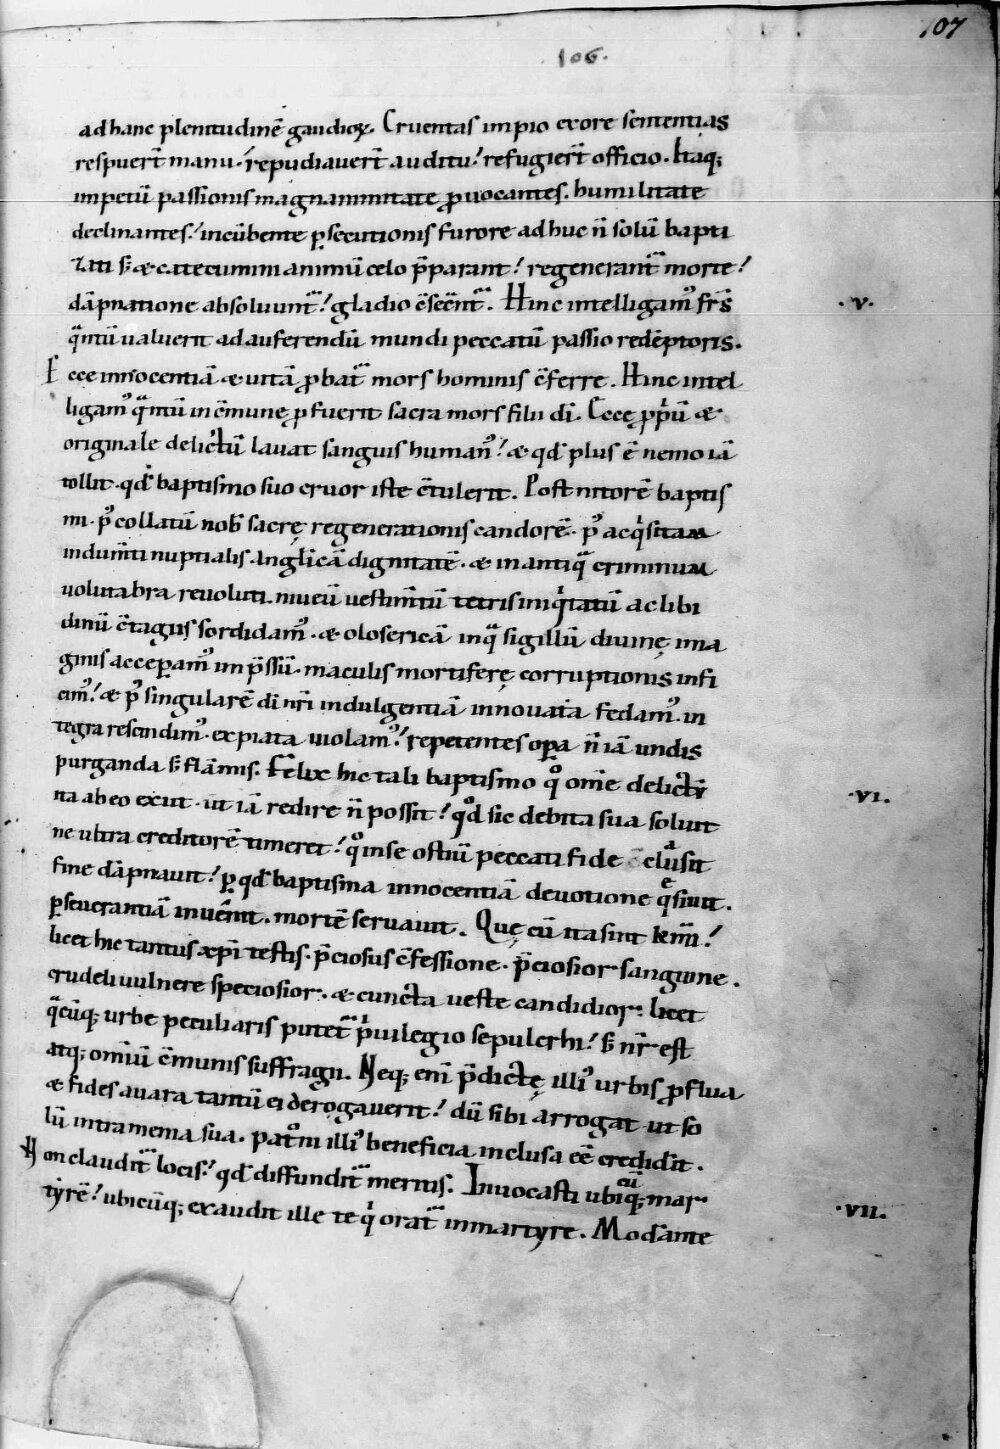 107
106.
ad hanc plenitudinē gaudioꝝ. Cruentas impio ex ore sententias
respuerт̄ manu ·́ repudiauerт̄ auditu ·́ refugierт̄ officio. Itaq;
impetū passionis magnanimitate ꝓuocantes. humilitate
declinantes ·́ incūbente ꝑsecutionis furore adhuc ñ solū bapti
zati s̄ & catecumini animū celo p̄parant ·́ regeneranт̄ morte ·́
dāpnatione absoluunт̄ ·́ gladio c̄secranт̄. Hinc intelligam᾽ fr̄s
·V·
qᷓntū ualuerit ad auferendū mundi peccatū passio redēptoris.
Ecce innocentiā & uitā ꝓbaт̄ mors hominis c̄ferre. Hinc intel
ligam᾽ qᷓntū in c̄mune ꝓfuerit sacra mors filii di̅. Ecce ꝓp̄ū &
originale delictū lauat sanguis human᾽ ·́ & qd̄ plus ē nemo iā
tollit · qd̄ baptismo suo cruor iste c̄tulerit. Post nitorē baptis
mi · p᾽ collatū nob̄ sacrę regenerationis candorē · p᾽ acqͥsitam
indum̄ti nuptialis · angl̄icā dignitatē · & in antiqᷓ criminum
uolutabra reuoluti. niueū uestim̄tū tetris iniqͥtatū ac libi
dinū c̄tagiis sordidam᾽ · & olosericā inqᷓ sigillū diuinę ima
ginis acceꝑam᾽ imp̄ssū · maculis mortiferę corruptionis infi
cim᾽ ·́ & p᾽ singularē di̅ nr̄i indulgentiā innouata fedam᾽ · in
tegra rescindim᾽ · expiata uiolam᾽ ·́ repetentes oꝑa ñ iā undis
purganda s̄ flāmis. Felix hic tali baptismo qͦ om̄e delictū
·VI·
ita ab eo exiit · ut iā redire ñ possit ·́ qͦd sic debita sua soluit
ne ultra creditorē timeret ·́ qͦ in se ostiū peccati fide clᷓusit
fine dāpnauit ·́ ꝑ qd̄ baptisma innocentiā deuotione qᷓsiuit.
ꝑseuerantiā inuenit. mortē seruauit. Quę cū ita sint km̄i ·́
licet hic tantus xp̄i testis · p̄ciosus c̄fessione · p̄ciosior sanguine.
crudeli uulnere speciosior · & cuncta ueste candidior · licet
qᷓcūq; urbe peculiaris puteт̄ pͥuilegio sepulchri ·́ s̄ nr̄ est
atq; om̄iū c̄munis suffragii. Neq; eni̅ p̄dictę illi᾽ urbis ꝓflua
& fides auara tantū ei derogauerit ·́ dū sibi arrogat ut so
lū intra menia sua · patͦni illi᾽ beneficia inclusa eē credidit.
Non claudiт̄ locis ·́ qd̄ diffundiт̄ meritis. Inuocasti ubiq; cū mar
·VII·
tyrē ·́ ubicūq; exaudit ille te qͥ oraт̄ in martyre. Modᷓ ante